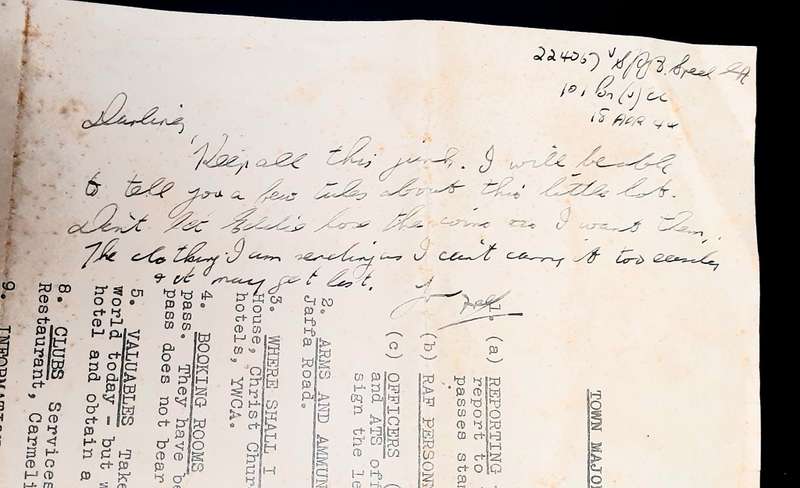 224057 S/Sgt B. Speed
18 APR 44
Darling,
Keep all this junk. I will be able
to tell you a few tales about this little lot.
Don't let Eddie have the coins as I want them.
The clothing I am sending as I can't carry it too easily
& it may get lost.
TOWN MAJO
(a) REPORTING
report to
passes sta
(b) RAF PERSON
(c) OFFICERS (
and ATS off
sign the le
2. ARMS AND AMMUN
Jaffa Road.
3. WHERE SHALL I
House, Christ Chur
hotels, YWCA.
4. BOOKING ROOMS
pass. They have be
pass does not bear
5. VALUABLES Take
world today - but w
hotel and obtain a
8. CLUBS Services
Restaurant, Carmeli
9. INFORMATION